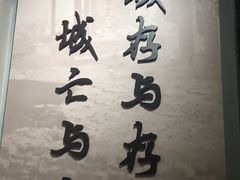 城存与存
城亡与